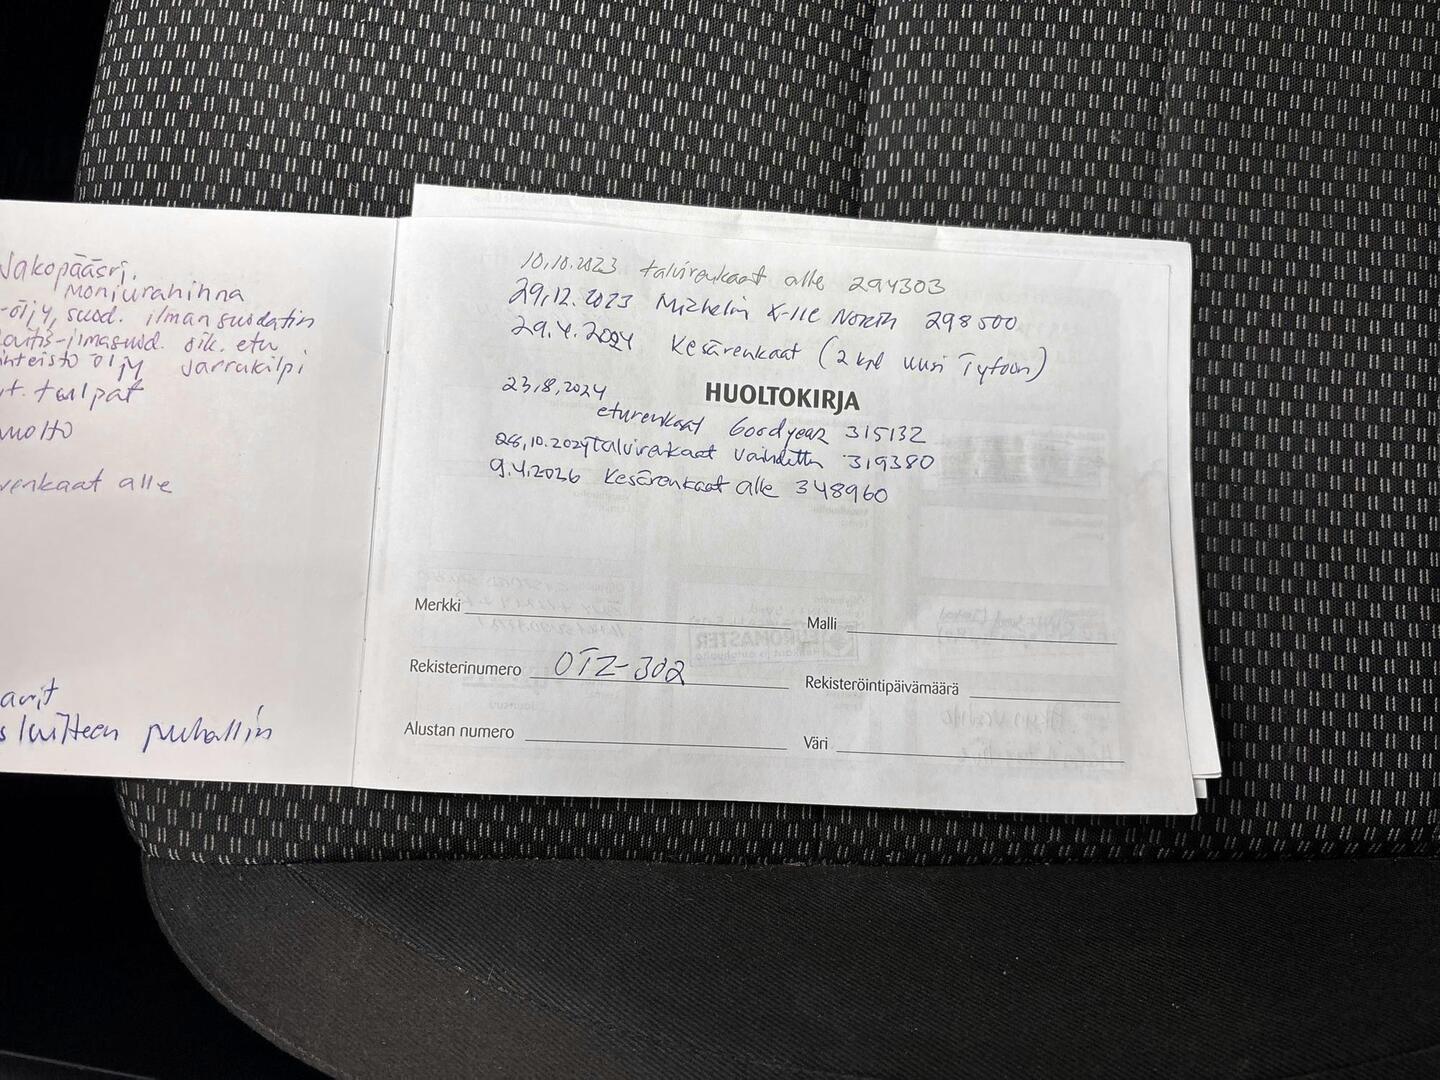 Jakopääsrj.
Moniurahihna
-öljy, suod. ilmansuodatin
-ilmasuod. oik. etu
öljy Jarrukilpi
t. tulpat
huolto
renkaat alle
puhallin
10.10.2023 talvirenkaat alle 294303
29.12.2023 Michelin X-ICE North 298500
29.4.2024 Kesärenkaat (2 kpl uusi Tyfoon)
HUOLTOKIRJA
23.8.2024
eturenkaat Goodyear 315132
28.10.2024 talvirenkaat vaihdettu 319380
9.4.2026 Kesärenkaat alle 348960
Merkki
Malli
Rekisterinumero OTZ-302
Rekisteröintipäivämäärä
Alustan numero
Väri